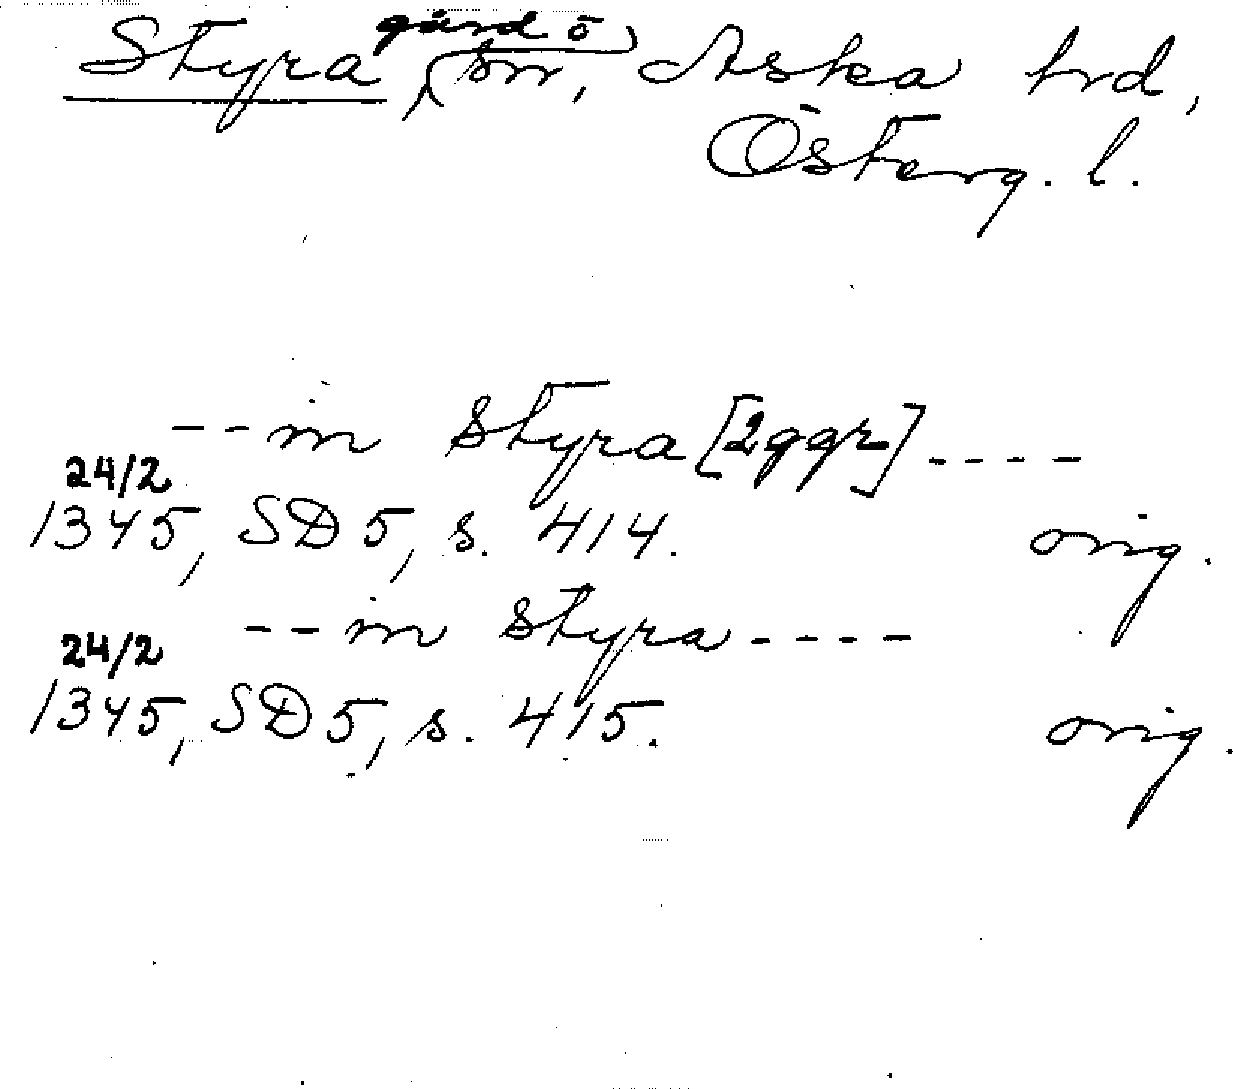 gård ö
Styra, sn, Aska hrd,
Österg. l.
--in Styra [2ggr]----
24/2
1345, SD 5, s. 414. orig.
--in Styra----
24/2
1345, SD 5, s. 415. orig.